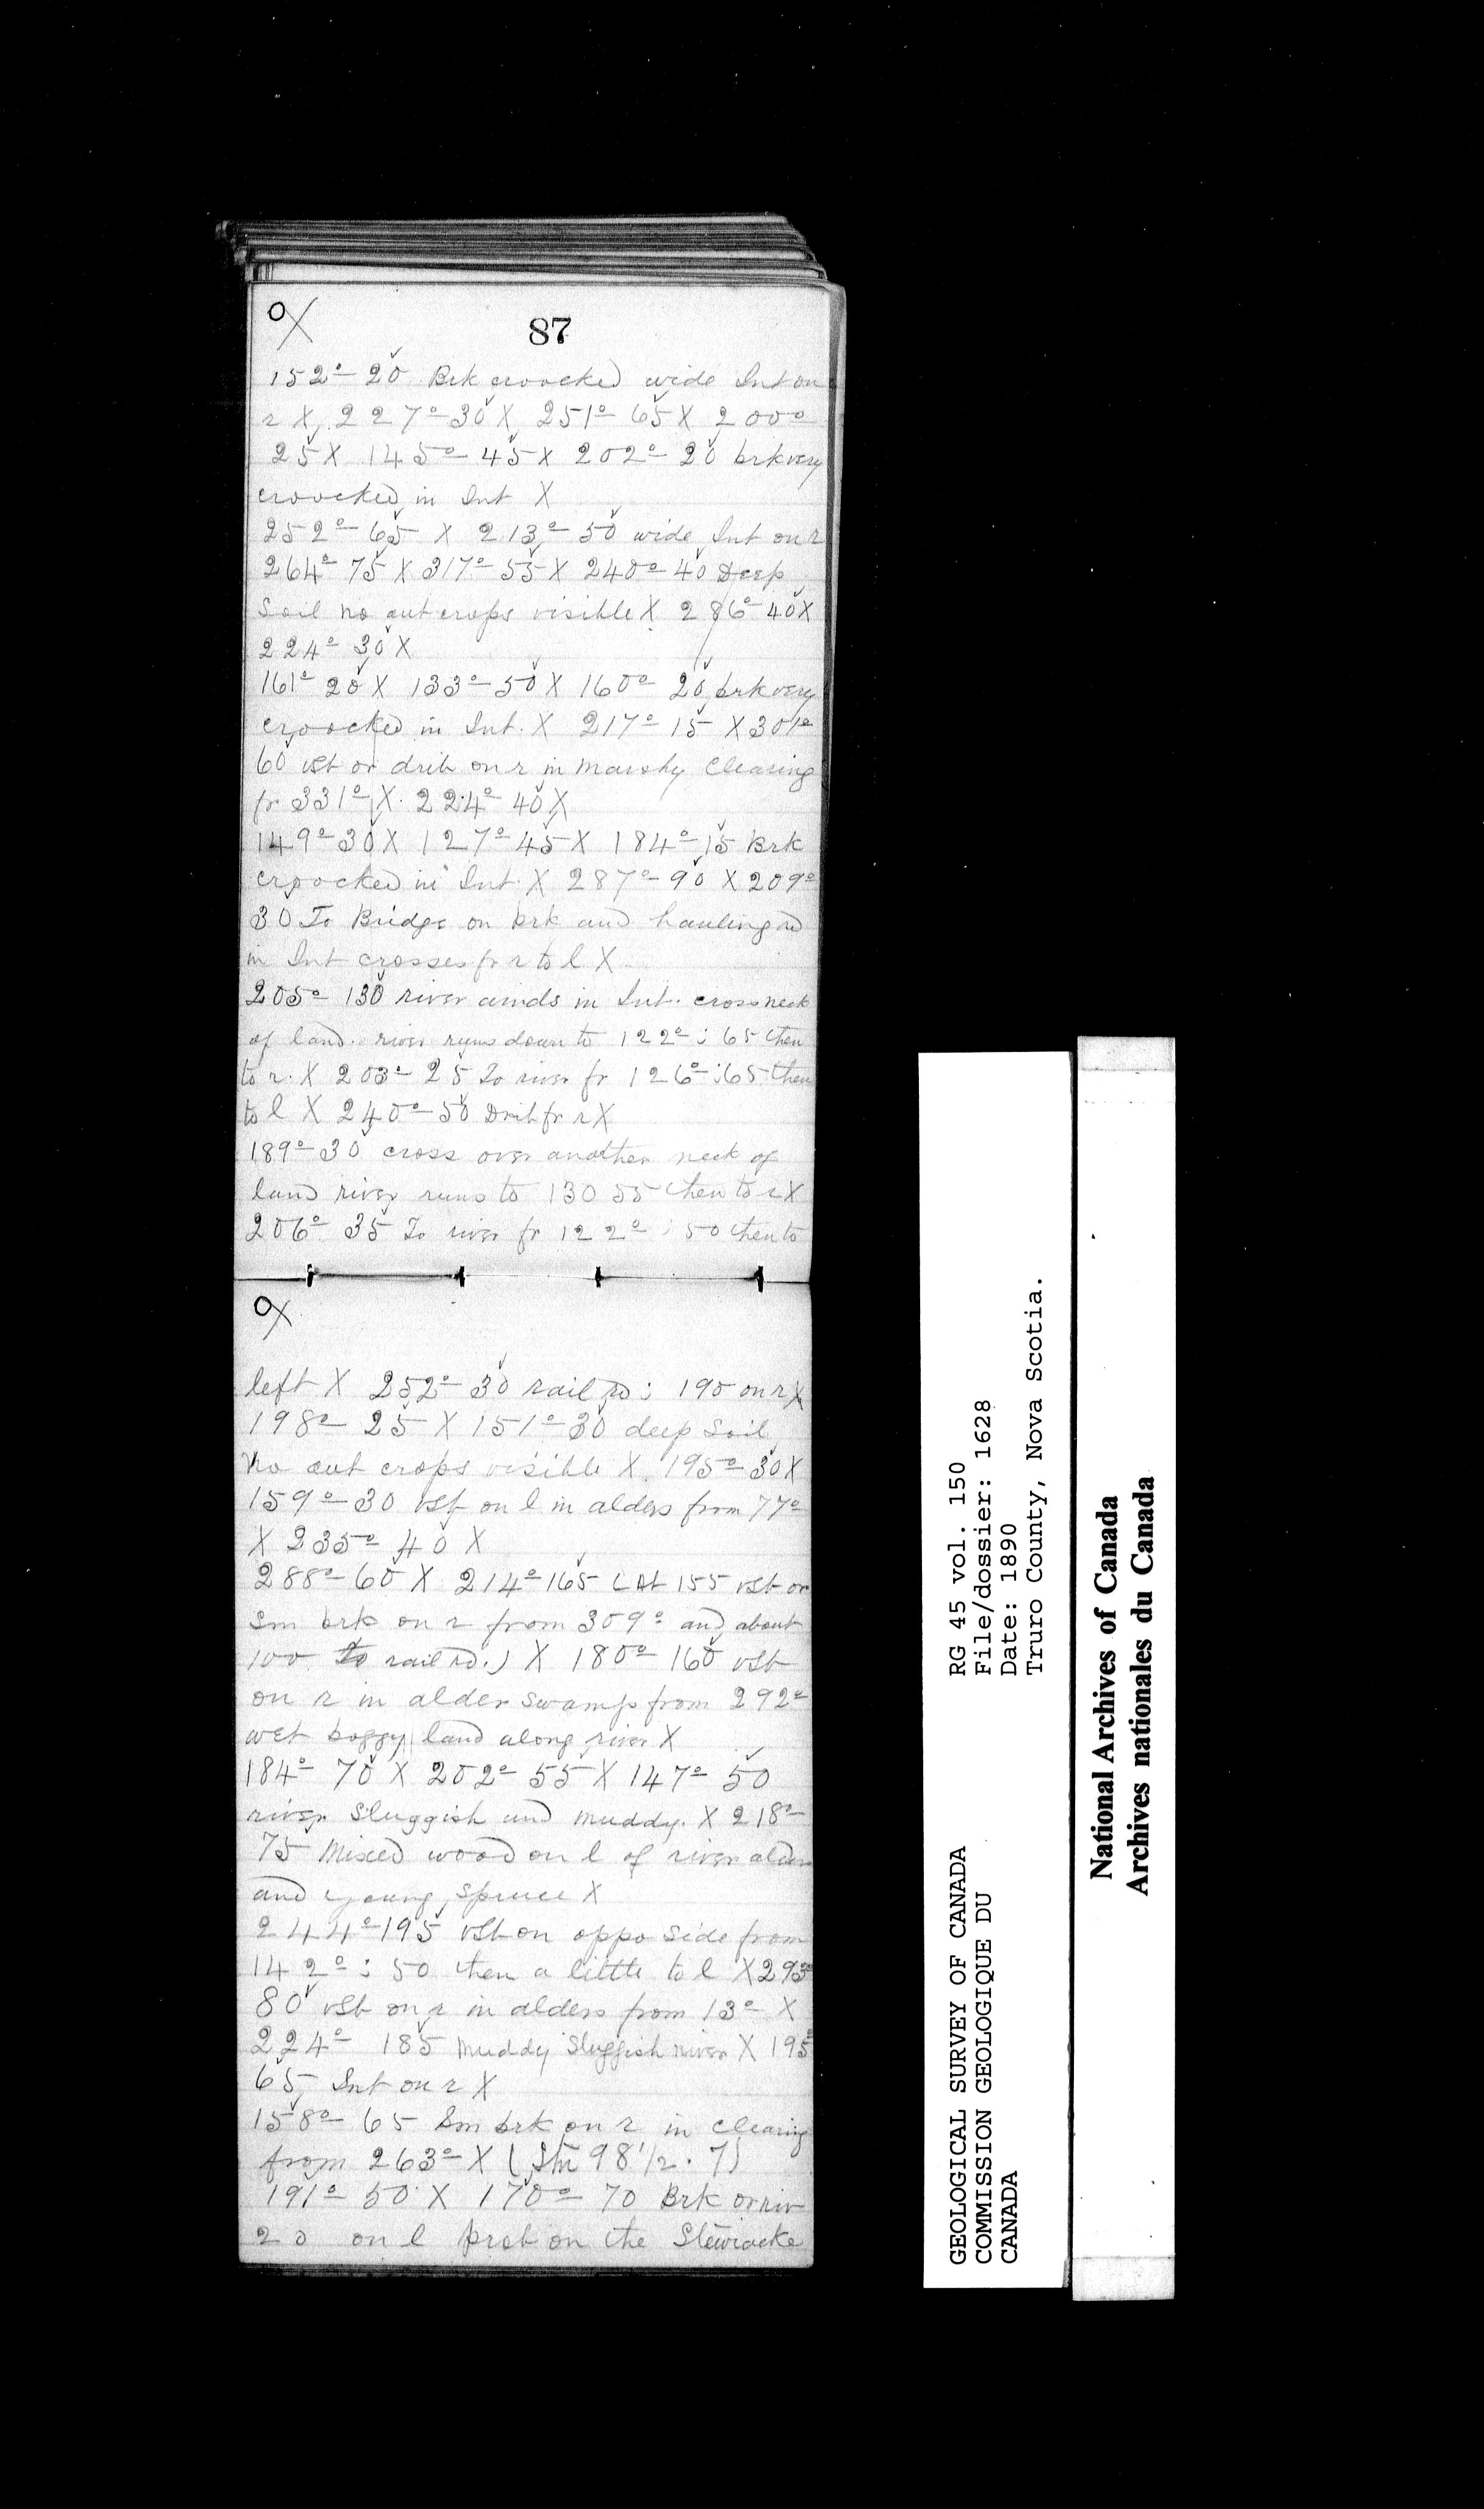 OX
87
152°- 20 Brk croocked wide Int on
r X 227°- 30 X 251°- 65 X 200°-
25 X 145°- 45 X 202°- 20 brk very
croocked in Int X
252°- 65 X 213°- 50 wide Int on r
264°- 75 X 317°- 55 X 240°- 40 Deep
Soil no out crops visible X 286°- 40 X
224°- 30 X
161°- 20 X 133°- 50 X 160°- 20 brk very
croocked in Int. X 217°- 15 X 301°-
60 vSt or drib on r in marshy Clearing
fr 331°- X. 224°- 40 X
149°- 30 X 127°- 45 X 184°- 15 Brk
croocked in Int. X 287°- 90 X 209°-
30 To Bridge on brk and hauling rd
in Int crosses fr r to l X
205°- 130 river winds in Int. cross neck
of land. river runs down to 122°- : 65 then
to r. X 203°- 25 To river fr 126°- : 65 then
to l X 240°- 50 Drib fr r X
189°- 30 cross over another neck of
land river runs to 130 55 then to r X
206°- 35 To river fr 122°- : 50 then to
OX
left X 252°- 30 rail rd : 190 on r X
198°- 25 X 151°- 30 deep Soil
No out crops visible X 195°- 30 X
159°- 30 vSt on l in alders from 77°-
X 235°- 40 X
288°- 60 X 214°- 165 (At 155 vSt or
Sm brk on r from 309°- and about
100 to rail rd.) X 180°- 160 vSt
on r in alder swamp from 292°-
wet boggy land along river X
184°- 70 X 202°- 55 X 147°- 50
river Sluggish and muddy. X 218°-
75 Mixed wood on l of river alders
and young spruce X
244°- 195 vSt on oppo side from
142°- : 50 then a little to l X 293°
80 vSt on r in alders from 13°- X
224°- 185 Muddy Sluggish river X 195°
65 Int on r X
158°- 65 Sm brk on r in clearing
from 263°- X (Stn 98 1/2. 7)
191°- 50 X 170°- 70 Brk or riv
20 on l prob on the Stewiacke
GEOLOGICAL SURVEY OF CANADA
COMMISSION GEOLOGIQUE DU
CANADA
RG 45 vol. 150
File/dossier: 1628
Date: 1890
Truro County, Nova Scotia.
National Archives of Canada
Archives nationales du Canada